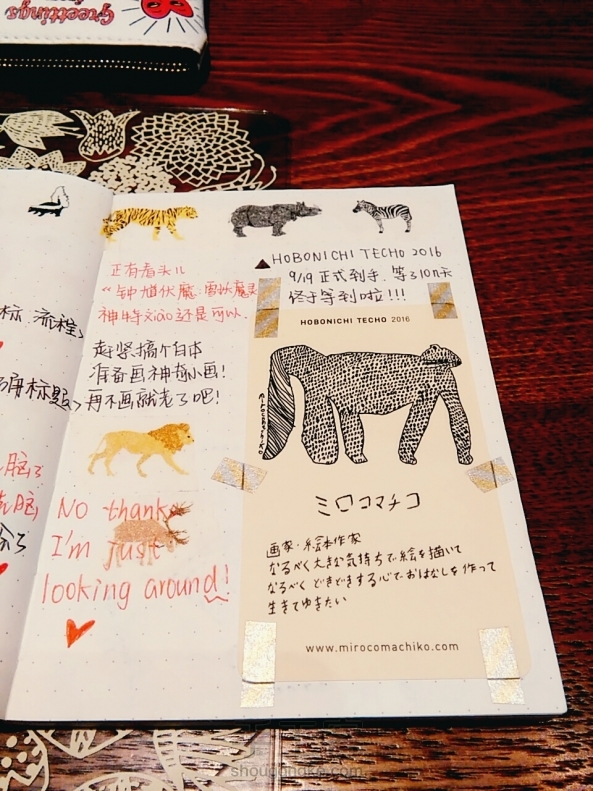 Greetings
标 流程》
正有看头儿
《钟馗伏魔:雪妖魔灵
神特xiào还是可以.
赶紧搞个白本
准备画神奇小画!
再不画就老了吧!
No thanks
I'm just
looking around!
▲HOBONICHI TECHO 2016
9/19 正式到手. 等了10n天
终于等到啦!!!
HOBONICHI TECHO 2016
mirocomachiko
ミロコマチコ
画家・絵本作家
なるべく大きな気持ちで絵を描いて
なるべく どきどきする心で おはなしを作って
生きてゆきたい
www.mirocomachiko.com
shougongke.com